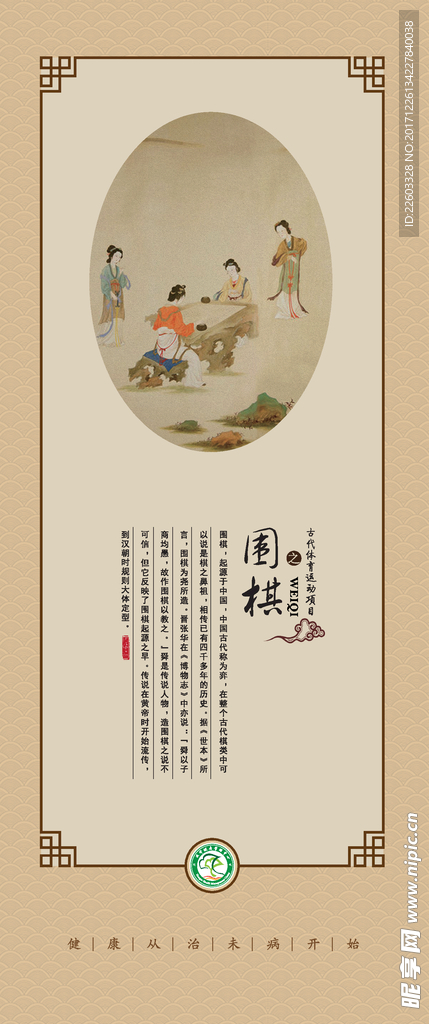 ID:22603328 NO:20171226134227840038
古代体育运动项目
之
WEIQI
围棋
围棋，起源于中国，中国古代称为弈，在整个古代棋类中可
以说是棋之鼻祖，相传已有四千多年的历史。据《世本》所
言，围棋为尧所造。晋张华在《博物志》中亦说：“舜以子
商均愚，故作围棋以教之。”舜是传说人物，造围棋之说不
可信，但它反映了围棋起源之早。传说在黄帝时开始流传，
到汉朝时规则大体定型。
健｜康｜从｜治｜未｜病｜开｜始
昵享网 www.nipic.cn